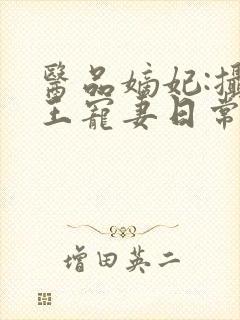 醫品嫡妃:攝
王寵妻日常
增田英二